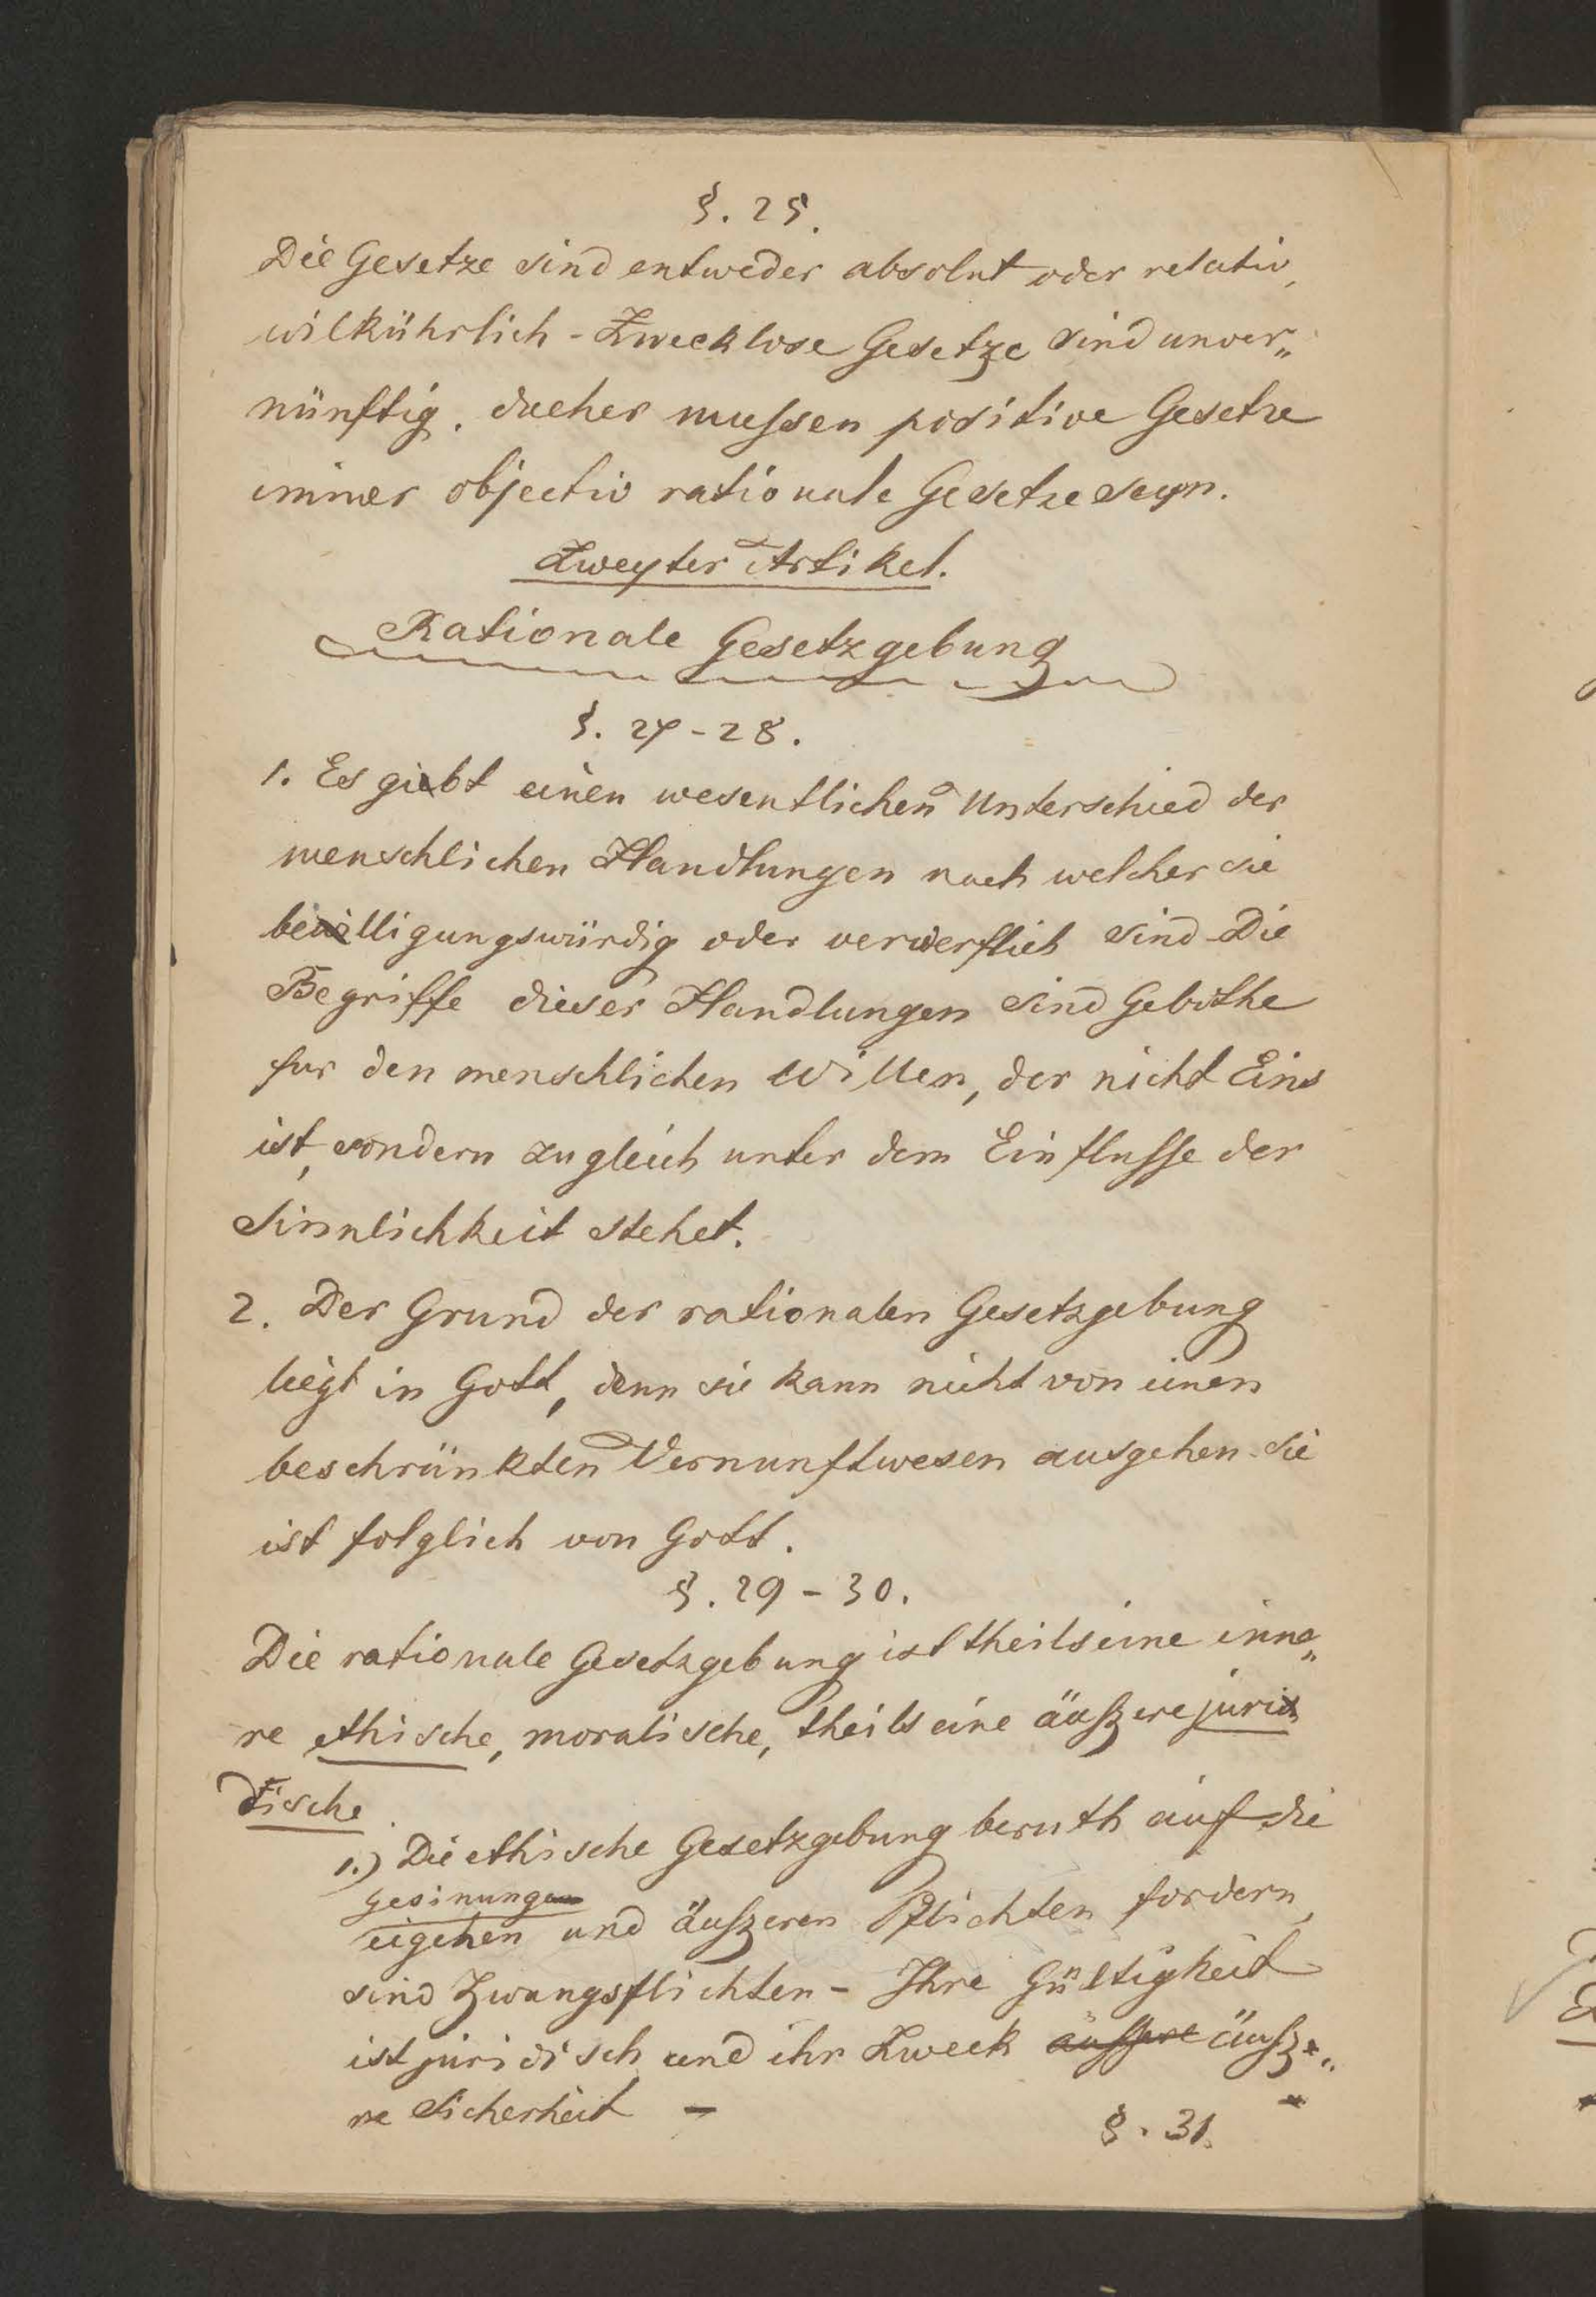 §. 25.
Die Gesetze sind entweder absolut oder relativ,
wilkührlich - Zwecklose Gesetze sind unver„
nünftig. daeher mussen positive Gesetze
immer objectiv rationale Gesetze seyn.
Zweyter Artikel.
Rationale Gesetzgebung
§. 27-28.
1. Es giebt einen wesentlichen Unterschied der
menschlichen Handlungen nach welcher sie
bewilligungswürdig oder verwerflich sind Die
Begriffe dieser Handlungen sind Gebothe
fur den menschlichen Willen, der nicht Eins
ist, sondern zugleich unter dem Einflusse der
Sinnlichkeit stehet.
2. Der Grund der rationalen Gesetzgebung
liegt in Gott, denn sie kann nicht von einen
beschränkten Vernunftwesen ausgehen. sie
ist folglich von Gott.
§. 29-30.
Die rationale Gesetzgebung ist theils eine inne„
re ethische, moralische, theils eine äußzere juri
dische
1.) Die ethische Gesetzgebung beruth auf die
Gesinungen
eigenen und äußzeren Pflichten fordern,
sind Zwangsflichten - Ihre Gültigkeit
ist juridisch und ihr Zweck aussere äußze„
re Sicherheit -
§. 31.